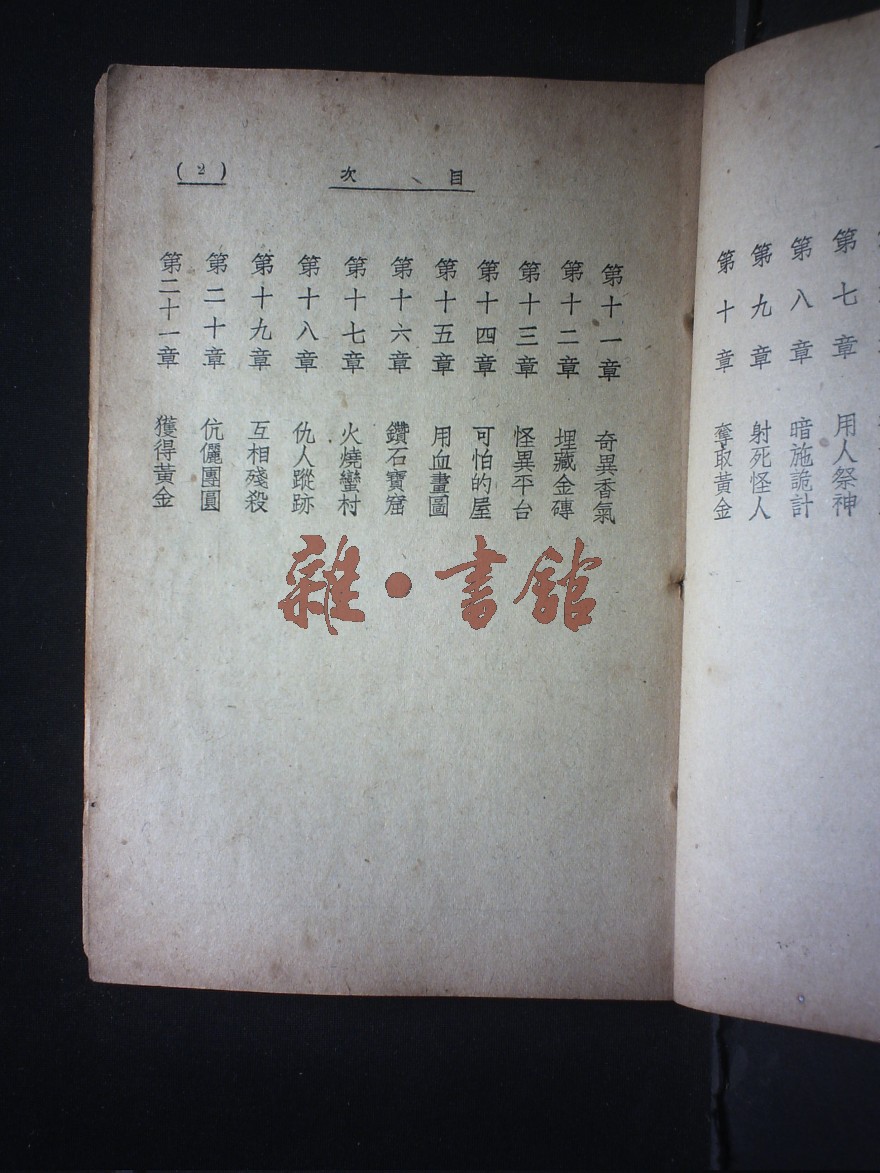 第七章 用人祭神
第八章 暗施詭計
第九章 射死怪人
第十章 奪取黃金
目次
(2)
第十一章 奇異香氣
第十二章 埋藏金磚
第十三章 怪異平台
第十四章 可怕的屋
第十五章 用血畫圖
第十六章 鑽石寶窟
第十七章 火燒蠻村
第十八章 仇人蹤跡
第十九章 互相殘殺
第二十章 伉儷團圓
第二十一章 獲得黃金
雜•書館